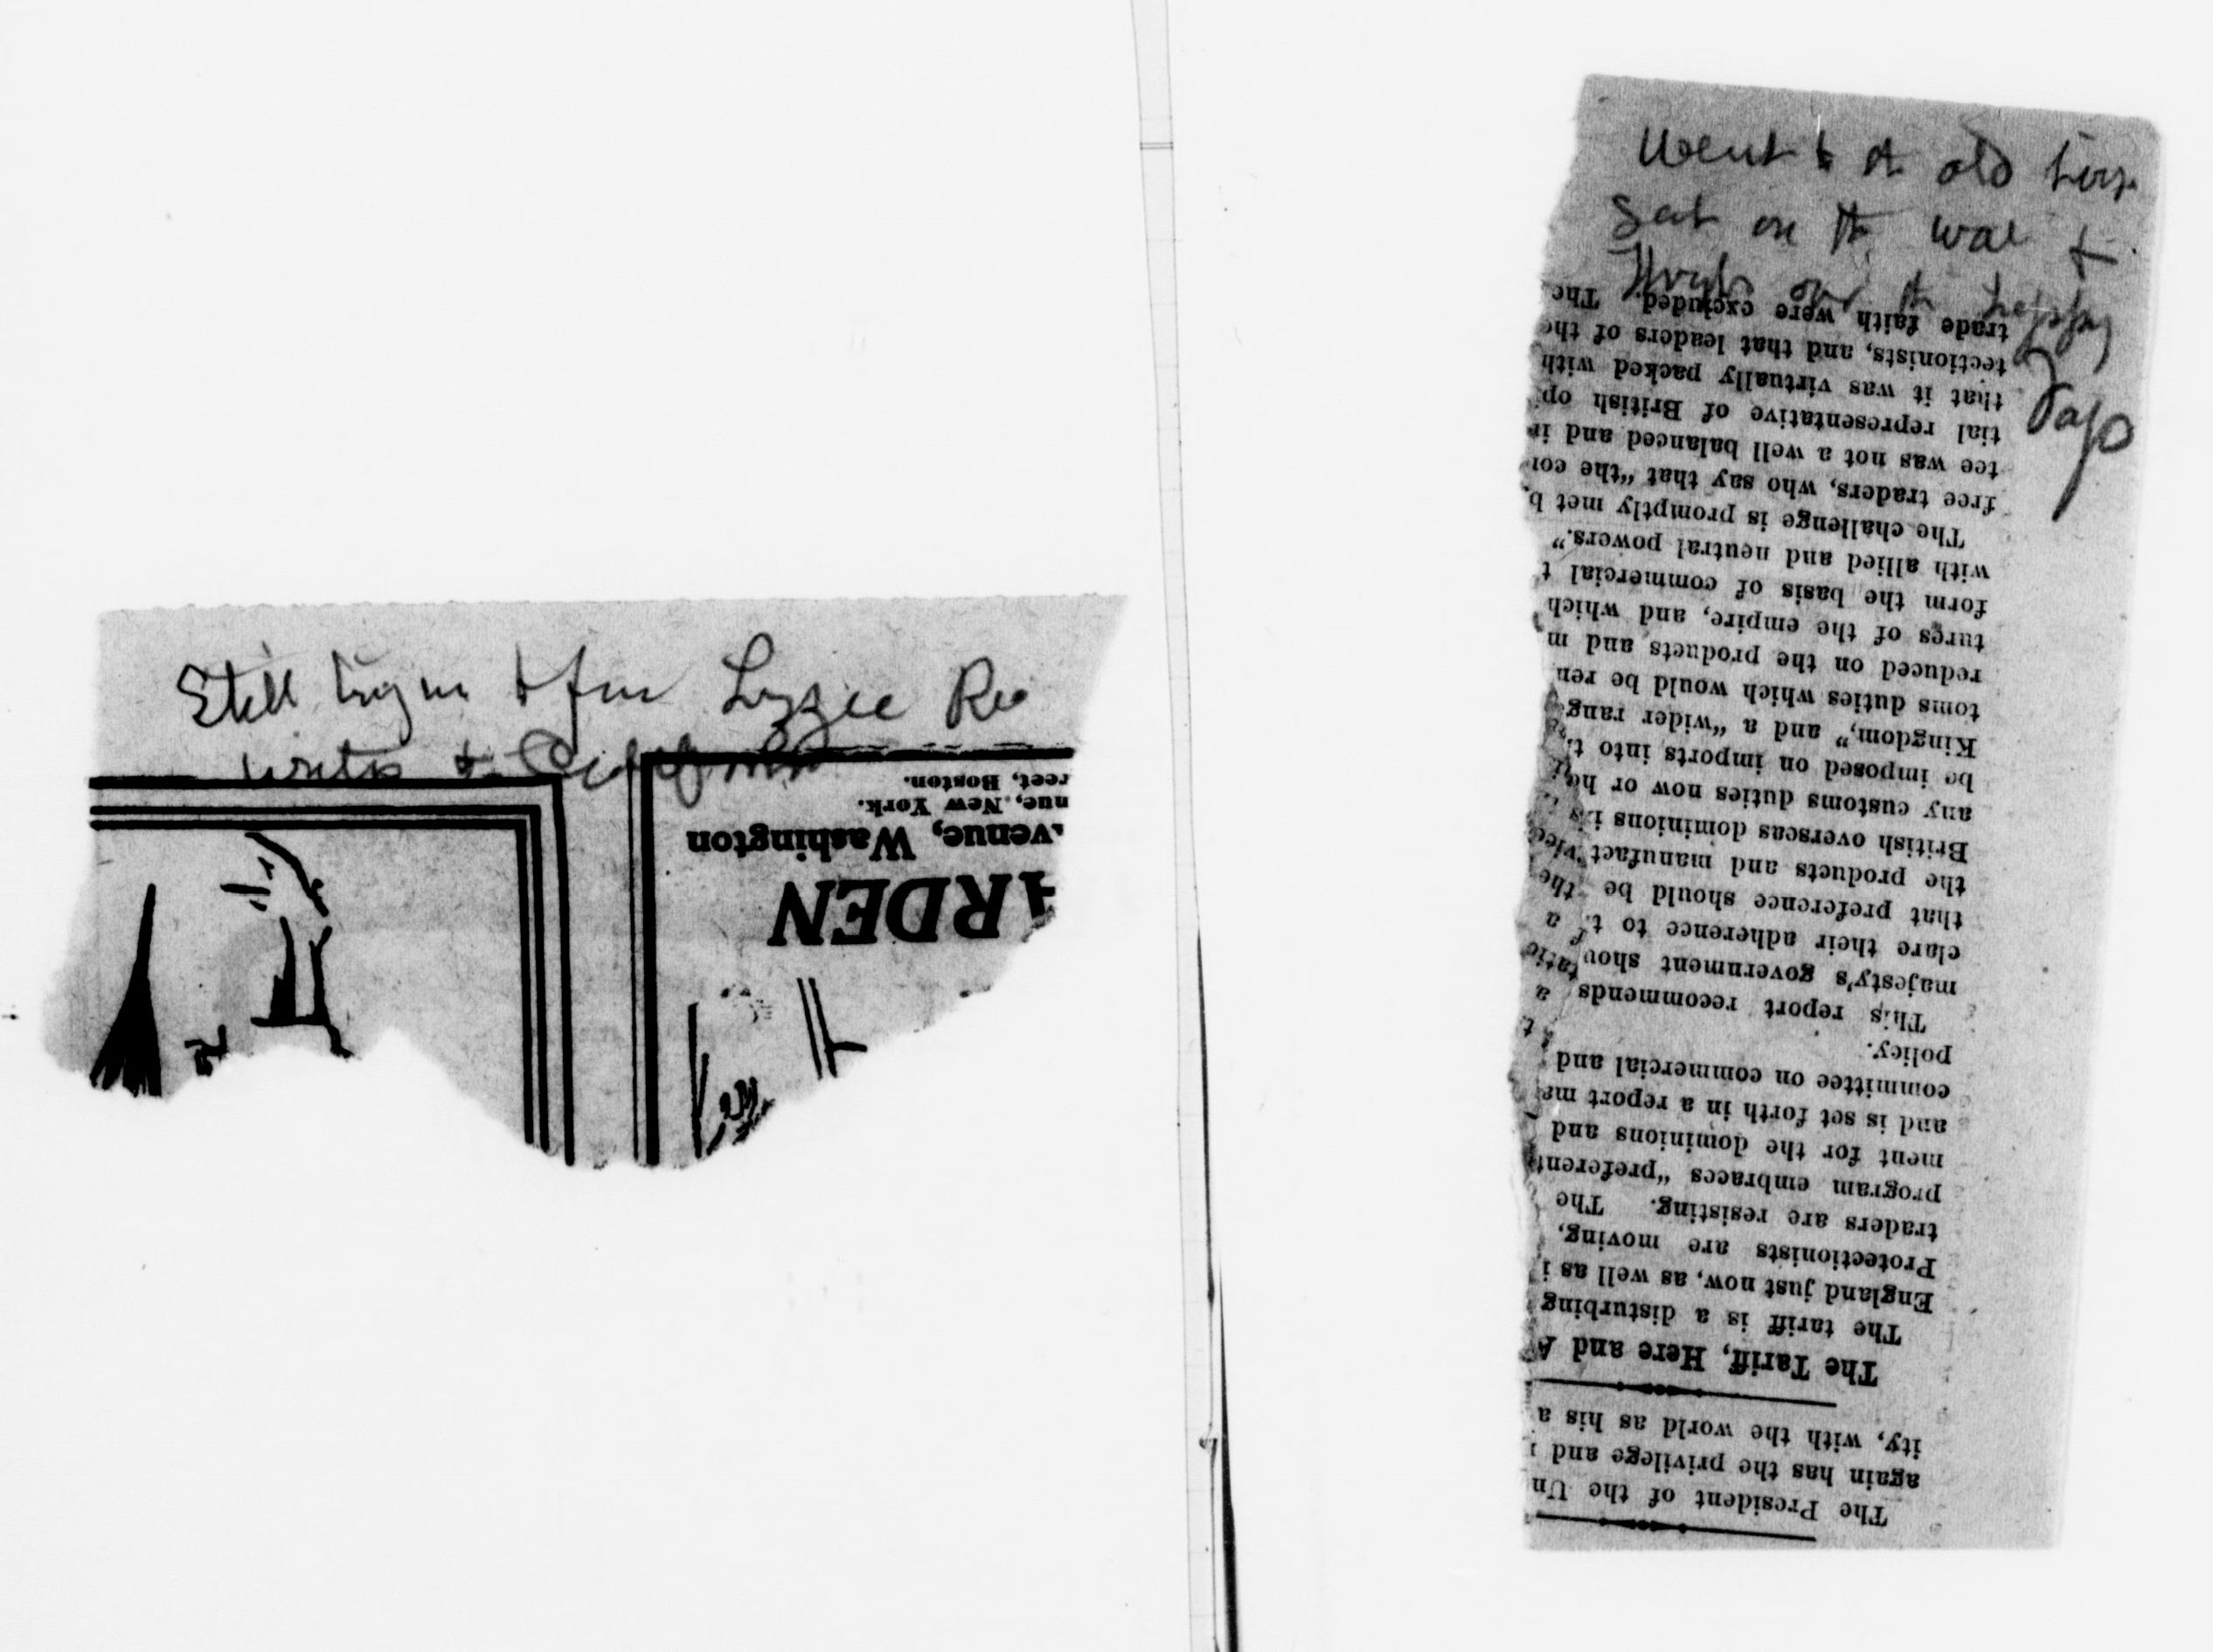 Still trying to
Lizzie
writes to
reet, Boston.
nue, New York.
venue, Washington
ARDEN
Went to the old
Sat on the wall &
over the happy
days
The President of the Un
again has the privilege and
ity, with the world as his a
The Tariff, Here and A
The tariff is a disturbing
England just now, as well as i
Protectionists are moving,
traders are resisting. The
program embraces "preferent
ment for the dominions and
and is set forth in a report ma
committee on commercial and
policy.
This report recommends
majesty's government shou
clare their adherence to t
that preference should be
the products and manufact
British overseas dominions i
any customs duties now or he
be imposed on imports into t
Kingdom," and a "wider rang
toms duties which would be ren
reduced on the products and m
tures of the empire, and which
form the basis of commercial t
with allied and neutral powers."
The challenge is promptly met b
free traders, who say that "the co
tee was not a well balanced and i
tial representative of British op
that it was virtually packed with
tectionists, and that leaders of th
trade faith were excluded. The